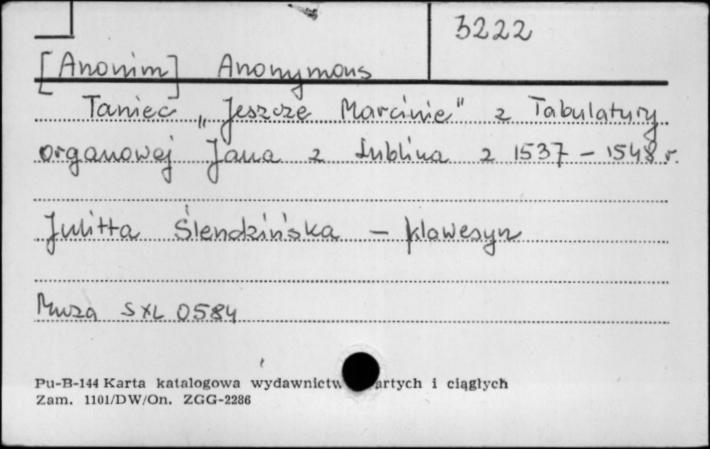 3222
[Anonim] Anonymous
Taniec „Jeszcze Marcinie" z Tabulatury
organowej Jana z Lublina z 1537 – 1548 r.
Julitta Ślendzińska – klawesyn
Muza SXL 0584
Pu-B-144 Karta katalogowa wydawnictw artych i ciągłych
Zam. 1101/DW/On. ZGG-2286